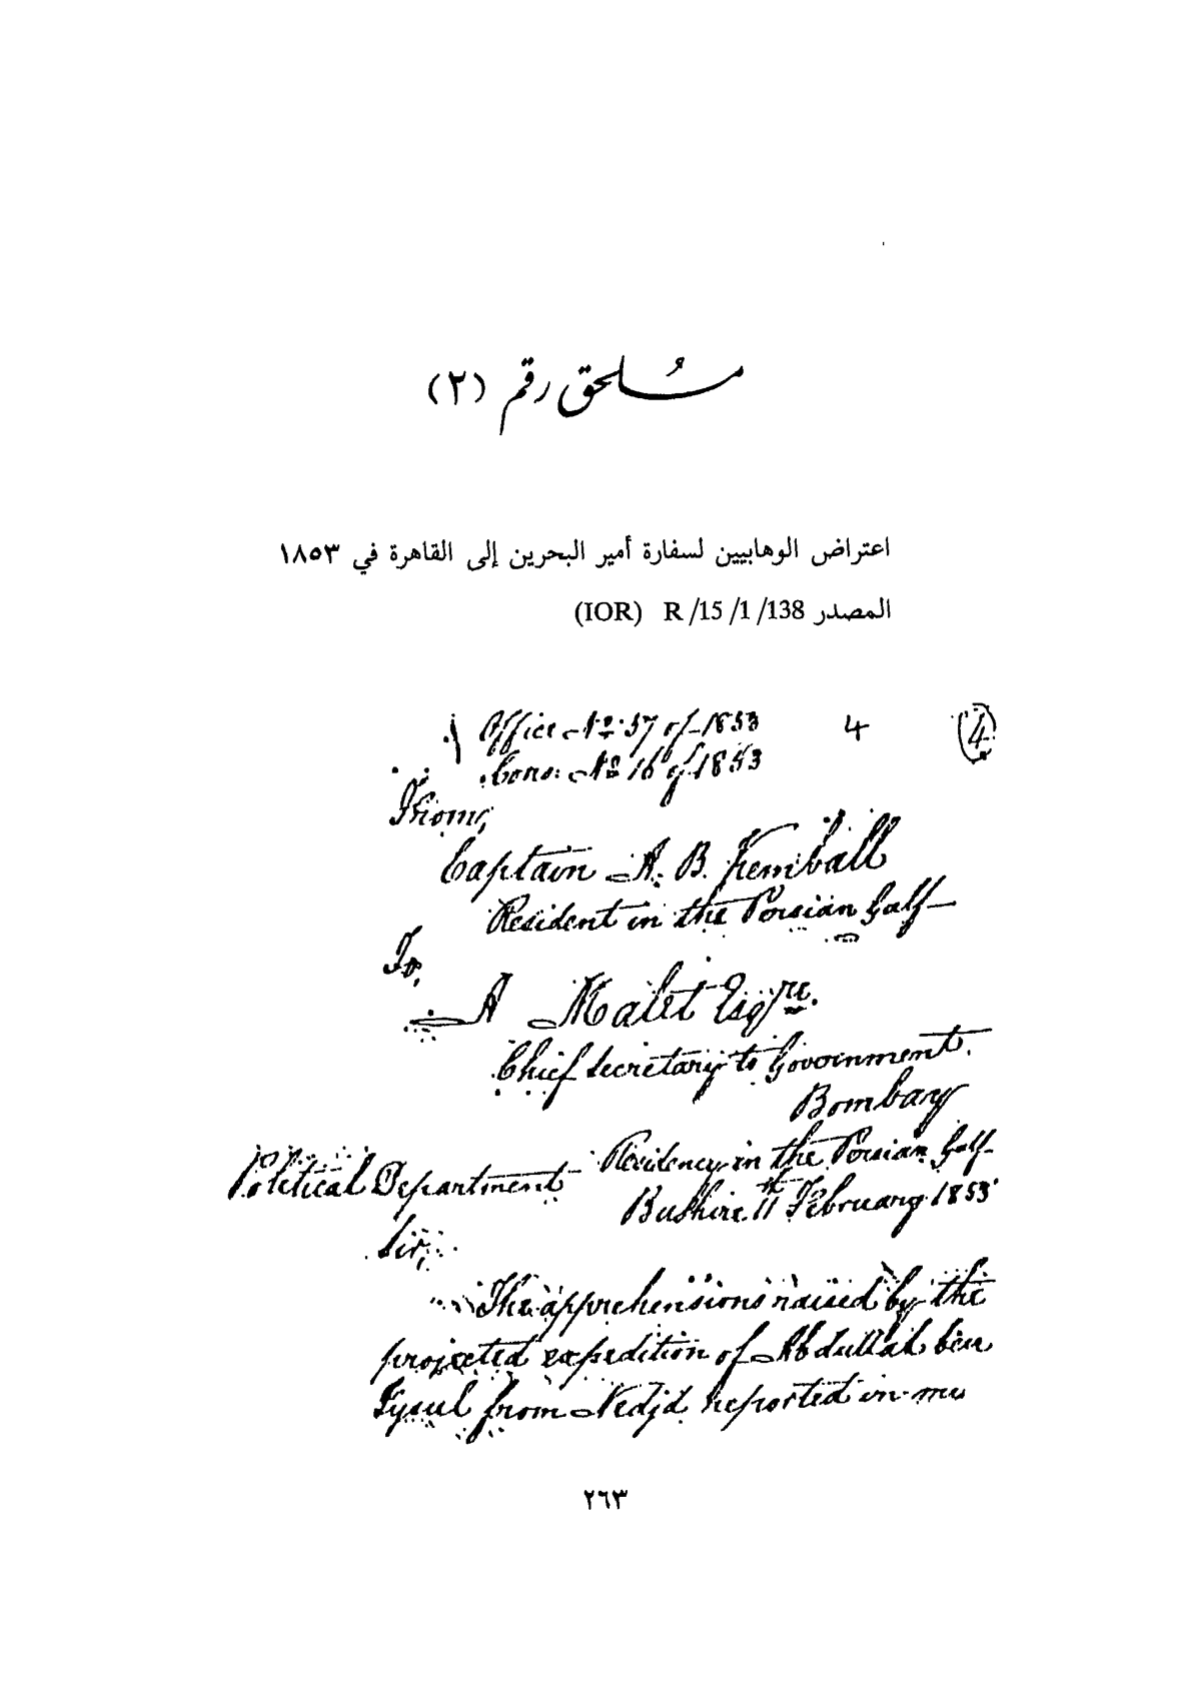 مُلحق رقم (٢)
اعتراض الوهابيين لسفارة أمير البحرين إلى القاهرة في ١٨٥٣
المصدر R/15/1/138 (IOR)
Office No. 37 of 1853 4 4
Cons: No 16 of 1853
From,
Captain A. B. Kemball
Resident in the Persian Gulf
To,
A Malet Esqre.
Chief Secretary to Government.
Bombay
Residency in the Persian Gulf
Political Department
Bushire 11th February 1853
Sir,
The apprehensions raised by the
projected expedition of Abdullah bin
Fysul from Nedjd reported in my
٢٦٣